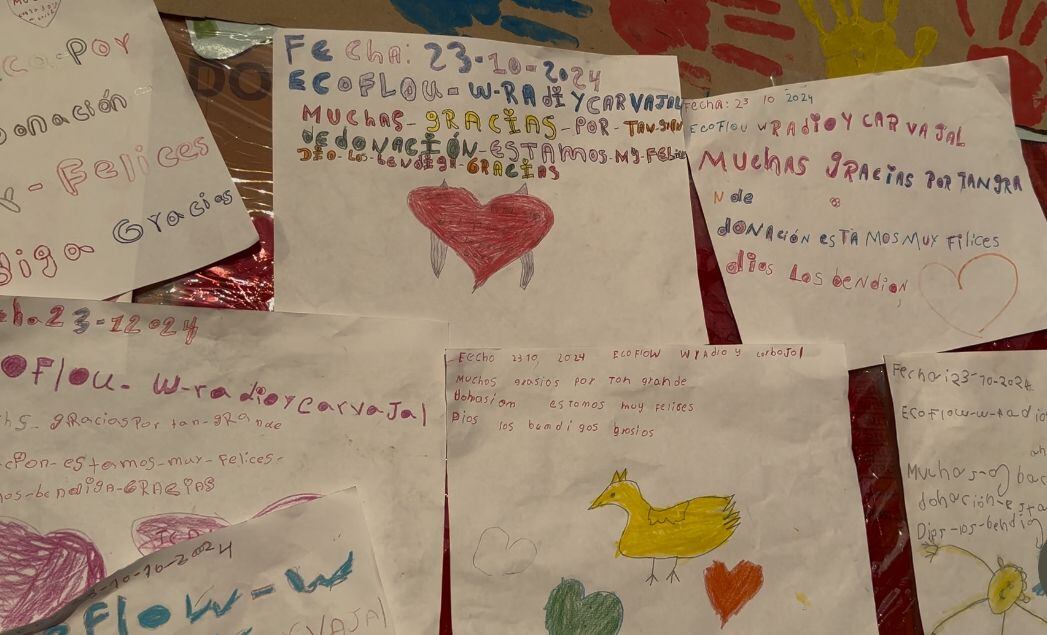 POR
onación
Felices
Gracias
DO
FEcha: 23-10-2024
ECOFLOU-W-RADIYCARVAJAL
MUCHAS-gRACIAS-POR-TANGRAN
DEDONACIÓN-ESTAMOS-MY-FELICE
DIO-LOS-bENdIgA-GRACIAS
Fecha: 23 10 2024
ECOFlou WRAdioY CARVAJAL
MUChAS gRACIAS POR TANGRA
N de
dONACIÓN esTAMOSMUY FilICES
diOS LOS bENdiON
ha 23-12024
OFlOU-W-radioYCarvaJAl
hS-gRaciasPor tan-gRAnde
cion-estamos-muy-Felices-
ios-bendiga-GRACIAS
Fecho 23 10, 2024 ECOFLOW WrAdio y carbaJal
Muchos grasios por Ton grande
donasion estomos muy Felices
Dios los bumdigos grosios
Fechai23-10-2024
ECOFlow-W-Radio
Muchas-g
donación-esta
Dios-los-bendig
10-2024
FlOW-W
VAJAl